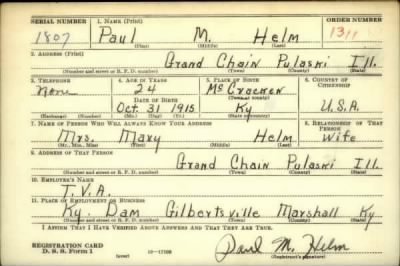 SERIAL NUMBER 1. NAME (Print) ORDER NUMBER
1807 Paul M. Helm 1311
(First) (Middle) (Last)
2. ADDRESS (Print)
Grand Chain Pulaski Ill.
(Number and street or R. F. D. number) (Town) (County) (State)
3. TELEPHONE 4. AGE IN YEARS 5. PLACE OF BIRTH 6. COUNTRY OF CITIZENSHIP
None 24 McCracken
DATE OF BIRTH (Town or county)
Oct. 31 1915 Ky U.S.A.
(Exchange) (Number) (Mo.) (Day) (Yr.) (State or country)
7. NAME OF PERSON WHO WILL ALWAYS KNOW YOUR ADDRESS 8. RELATIONSHIP OF THAT PERSON
Mrs. Mary Helm Wife
(Mr., Mrs., Miss) (First) (Middle) (Last)
9. ADDRESS OF THAT PERSON
Grand Chain Pulaski Ill.
(Number and street or R. F. D. number) (Town) (County) (State)
10. EMPLOYER'S NAME
T.V.A.
11. PLACE OF EMPLOYMENT OR BUSINESS
Ky. Dam Gilbertsville Marshall Ky
(Number and street or R. F. D. number) (Town) (County) (State)
I AFFIRM THAT I HAVE VERIFIED ABOVE ANSWERS AND THAT THEY ARE TRUE.
REGISTRATION CARD
D. S. S. Form 1 Paul M. Helm
(Registrant's signature)